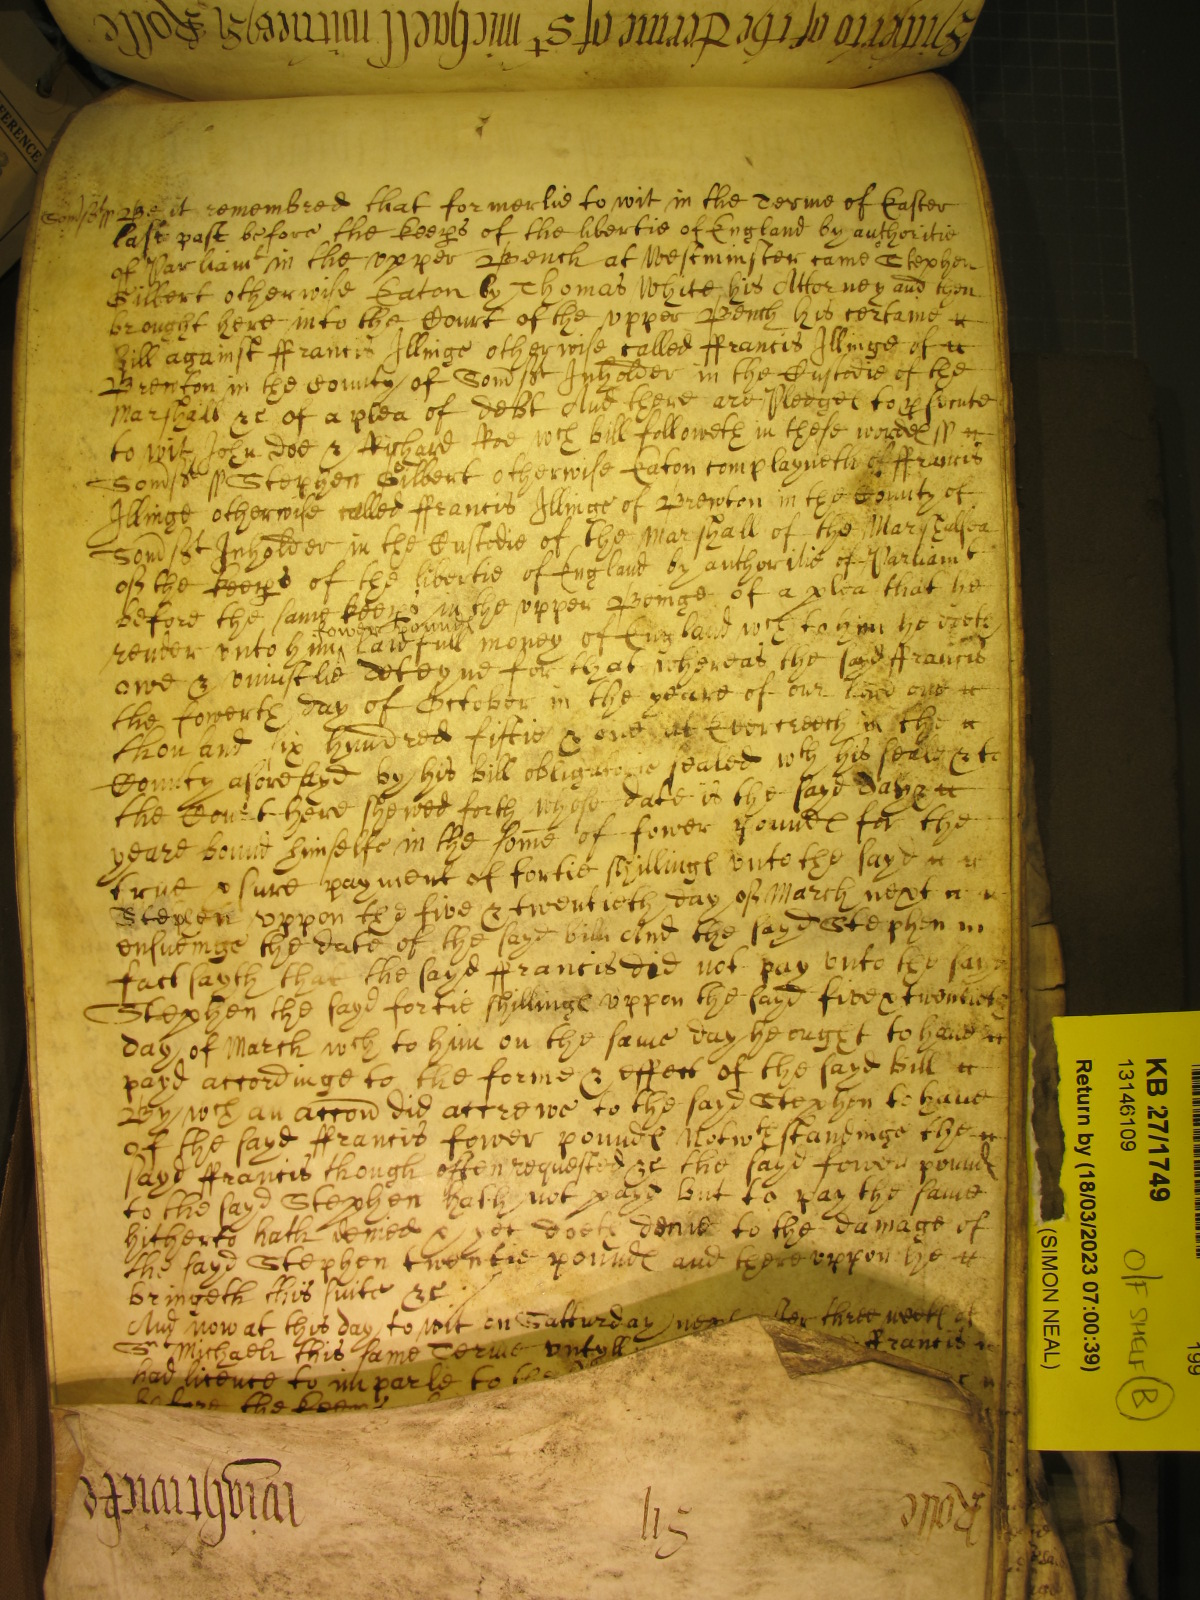 Hitherto of the Terme of St Michaell witnes H Rolle
Somst ss Be it remembred that formerlie to wit in the Terme of Easter
last past before the keeps of the libertie of England by authoritie
of Parliamt in the upper Bench at Westminster came Stephen
Gilbert otherwise Eaton by Thomas White his Attorney and then
brought here into the Court of the upper Bench his certaine
bill against ffrancis Illinge otherwise called ffrancis Illinge of
Brewton in the County of Somst Inholder in the Custodie of the
Marshall &c of a plea of debt And there are Pledges to psecute
to wit John Doe & Richard Roe wch bill followeth in these wordes ss
Somst ss Stephen Gilbert otherwise Eaton complayneth of ffrancis
Illinge otherwise called ffrancis Illinge of Brewton in the County of
Somst Inholder in the Custodie of the Marshall of the Marshalsea
of the keeps of the libertie of England by authoritie of Parliamt
before the same keeps in the upper Beinge of a plea that he
render unto him fower pounds lawfull money of England wch to him he doth
owe & uniustlie deteyne for that whereas the sayd ffrancis
the fowerth day of October in the yeare of our lord one
thousand six hundred fiftie & one at Evercreech in the
County aforesayd by his bill obligatorie sealed wth his seale & to
the Court here shewed forth whose date is the sayd day &
yeare bound himselfe in the some of fower pounds for the
true & sure payment of fortie shillings unto the sayd
Stephen uppon the five & twentieth day of March next
ensueinge the date of the sayd bill And the sayd Stephen in
fact sayth that the sayd ffrancis did not pay unto the sayd
Stephen the sayd fortie shillings uppon the sayd five & twentieth
day of March wch to him on the same day he ought to have
payd accordinge to the forme & effect of the sayd bill
By wch an accon did accrewe to the sayd Stephen to have
of the sayd ffrancis fower pounds Notwthstandinge the
sayd ffrancis though often requested &c the sayd fower pounds
to the sayd Stephen hath not payd but to pay the same
hitherto hath denied & yet doeth denie to the damage of
the sayd Stephen twentie pounds and thereuppon he
bringeth this suite &c
And now at this day to wit on Satturday next after three weeks of
St Michaell this same Terme untyll ffrancis
had licence to imparle to the
before the keeps
Wightwicke
115
Rolle
KB 27/1749
13146109
Return by (18/03/2023 07:00:39)
(SIMON NEAL)
O/F SHELF B
199
FERENCE